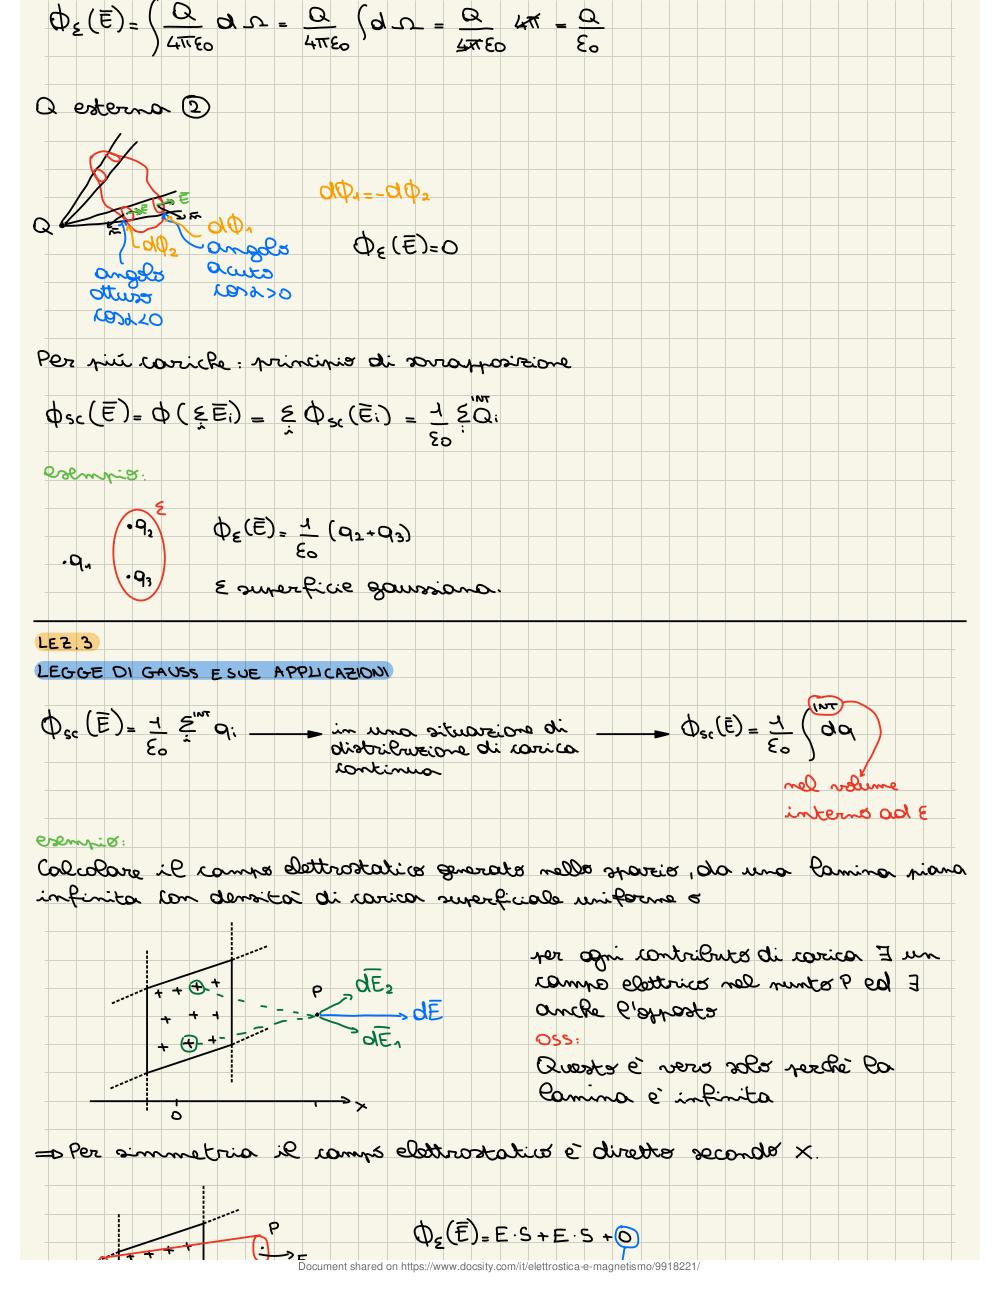 Φ_Σ(Ē) = ∫ Q/4πε0 dΩ = Q/4πε0 ∫dΩ = Q/4πε0 4π = Q/ε0
Q esterna ②
Q
Ē
Ē
n̄
n̄
dΦ1
dΦ2
angolo
ottuso
cosα<0
angolo
acuto
cosα>0
dΦ1=-dΦ2
Φ_Σ(Ē)=0
Per piú cariche: principio di sovrapposizione
Φsc(Ē) = Φ(Σi Ēi) = Σi Φsc(Ēi) = 1/ε0 Σi^INT Qi
esempio:
Σ
.q1
.q2
.q3
Φ_Σ(Ē) = 1/ε0 (q2+q3)
Σ superficie gaussiana.
LEZ.3
LEGGE DI GAUSS E SUE APPLICAZIONI
Φsc(Ē) = 1/ε0 Σi^INT qi → in una situazione di
distribuzione di carica
continua
→ Φsc(Ē) = 1/ε0 ∫^INT dq
nel volume
interno ad Σ
esempio:
Calcolare il campo elettrostatico generato nello spazio, da una lamina piana
infinita con densità di carica superficiale uniforme σ
+ + + +
+ + +
+ + +
P
dĒ2
dĒ
dĒ1
0
x
per ogni contributo di carica ∃ un
campo elettrico nel punto P ed ∃
anche l'opposto
OSS:
Questo è vero solo perchè la
lamina è infinita
⇒ Per simmetria il campo elettrostatico è diretto secondo X.
+ + + +
P
Φ_Σ(Ē) = E·S + E·S + 0
Document shared on https://www.docsity.com/it/elettrostica-e-magnetismo/9918221/